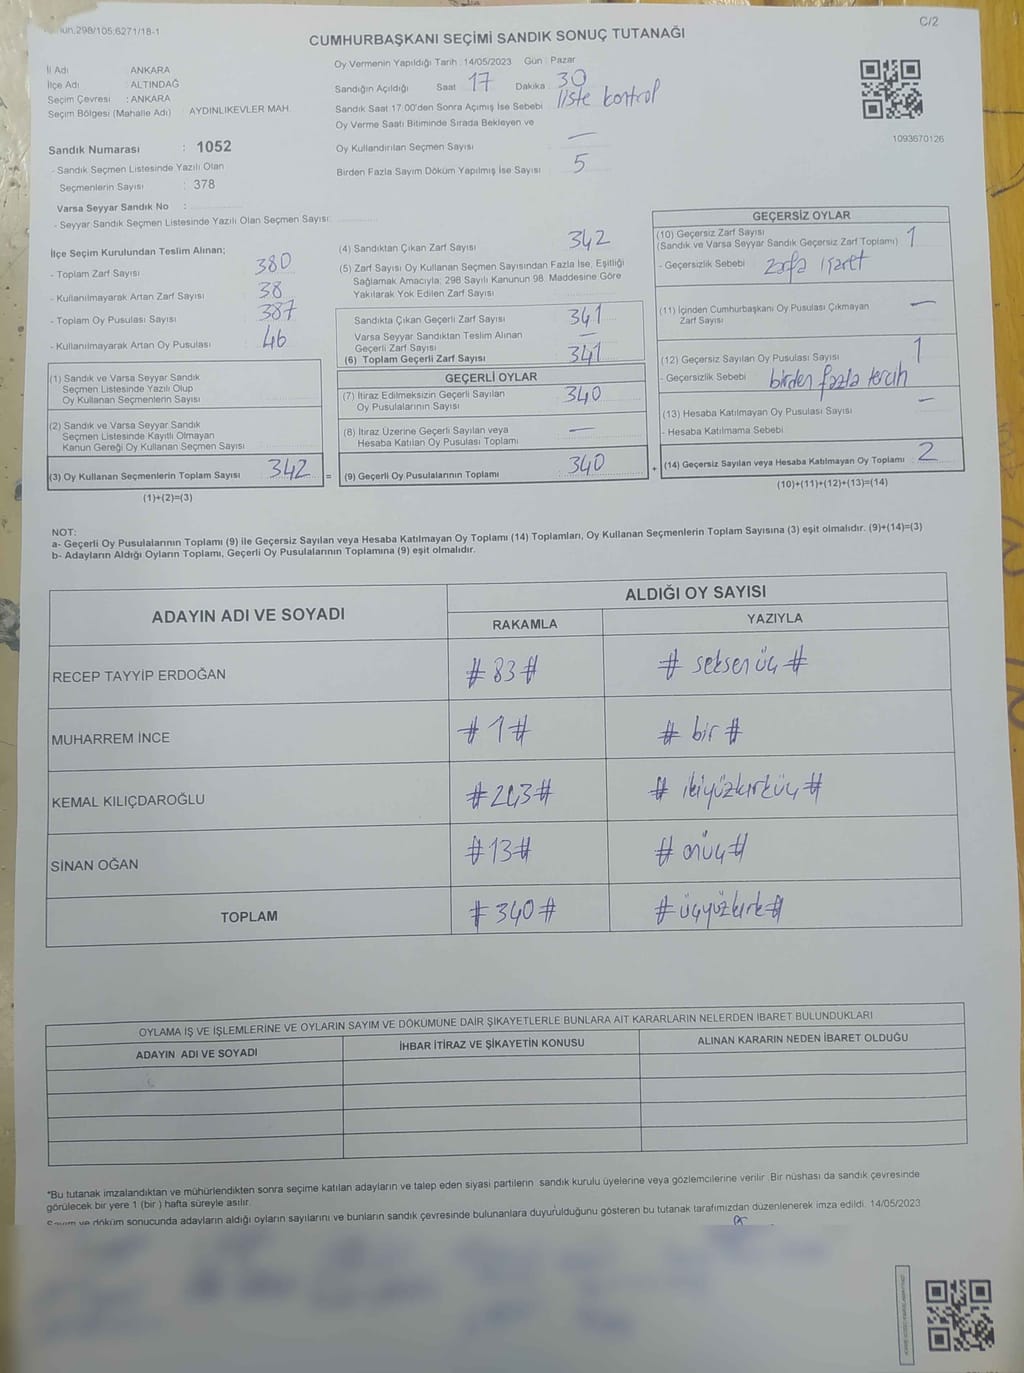 298/105,6271/18-1
C/2
CUMHURBAŞKANI SEÇİMİ SANDIK SONUÇ TUTANAĞI
İl Adı : ANKARA
İlçe Adı : ALTINDAĞ
Seçim Çevresi : ANKARA
Seçim Bölgesi (Mahalle Adı) AYDINLIKEVLER MAH.
Sandık Numarası : 1052
- Sandık Seçmen Listesinde Yazılı Olan
Seçmenlerin Sayısı : 378
Varsa Seyyar Sandık No :
- Seyyar Sandık Seçmen Listesinde Yazılı Olan Seçmen Sayısı:
Oy Vermenin Yapıldığı Tarih : 14/05/2023 Gün : Pazar
Sandığın Açıldığı Saat 17 Dakika : 30
Sandık Saat 17.00'den Sonra Açımış İse Sebebi liste kontrol
Oy Verme Saati Bitiminde Sırada Bekleyen ve
Oy Kullandırılan Seçmen Sayısı : —
Birden Fazla Sayım Döküm Yapılmış İse Sayısı : 5
1093670126
İlçe Seçim Kurulundan Teslim Alınan;
- Toplam Zarf Sayısı 380
- Kullanılmayarak Artan Zarf Sayısı 38
- Toplam Oy Pusulası Sayısı 387
- Kullanılmayarak Artan Oy Pusulası 46
(1) Sandık ve Varsa Seyyar Sandık
Seçmen Listesinde Yazılı Olup
Oy Kullanan Seçmenlerin Sayısı
(2) Sandık ve Varsa Seyyar Sandık
Seçmen Listesinde Kayıtlı Olmayan
Kanun Gereği Oy Kullanan Seçmen Sayısı
(3) Oy Kullanan Seçmenlerin Toplam Sayısı 342
(1)+(2)=(3)
(4) Sandıktan Çıkan Zarf Sayısı 342
(5) Zarf Sayısı Oy Kullanan Seçmen Sayısından Fazla İse, Eşitliği
Sağlamak Amacıyla; 298 Sayılı Kanunun 98. Maddesine Göre
Yakılarak Yok Edilen Zarf Sayısı
Sandıkta Çıkan Geçerli Zarf Sayısı 341
Varsa Seyyar Sandıktan Teslim Alınan
Geçerli Zarf Sayısı —
(6) Toplam Geçerli Zarf Sayısı 341
GEÇERLİ OYLAR
(7) İtiraz Edilmeksizin Geçerli Sayılan
Oy Pusulalarının Sayısı 340
(8) İtiraz Üzerine Geçerli Sayılan veya
Hesaba Katılan Oy Pusulası Toplamı —
= (9) Geçerli Oy Pusulalarının Toplamı 340
GEÇERSİZ OYLAR
(10) Geçersiz Zarf Sayısı
(Sandık ve Varsa Seyyar Sandık Geçersiz Zarf Toplamı) 1
- Geçersizlik Sebebi zarfa işaret
(11) İçinden Cumhurbaşkanı Oy Pusulası Çıkmayan
Zarf Sayısı —
(12) Geçersiz Sayılan Oy Pusulası Sayısı 1
- Geçersizlik Sebebi birden fazla tercih
(13) Hesaba Katılmayan Oy Pusulası Sayısı —
- Hesaba Katılmama Sebebi
+ (14) Geçersiz Sayılan veya Hesaba Katılmayan Oy Toplamı 2
(10)+(11)+(12)+(13)=(14)
NOT:
a- Geçerli Oy Pusulalarının Toplamı (9) ile Geçersiz Sayılan veya Hesaba Katılmayan Oy Toplamı (14) Toplamları, Oy Kullanan Seçmenlerin Toplam Sayısına (3) eşit olmalıdır. (9)+(14)=(3)
b- Adayların Aldığı Oyların Toplamı, Geçerli Oy Pusulalarının Toplamına (9) eşit olmalıdır.
ADAYIN ADI VE SOYADI ALDIĞI OY SAYISI
RAKAMLA YAZIYLA
RECEP TAYYİP ERDOĞAN # 83 # # seksen üç #
MUHARREM İNCE # 1 # # bir #
KEMAL KILIÇDAROĞLU # 243 # # ikiyüzkırküç #
SİNAN OĞAN # 13 # # onüç #
TOPLAM # 340 # # üçyüzkırk #
OYLAMA İŞ VE İŞLEMLERİNE VE OYLARIN SAYIM VE DÖKÜMÜNE DAİR ŞİKAYETLERLE BUNLARA AİT KARARLARIN NELERDEN İBARET BULUNDUKLARI
ADAYIN ADI VE SOYADI İHBAR İTİRAZ VE ŞİKAYETİN KONUSU ALINAN KARARIN NEDEN İBARET OLDUĞU
*Bu tutanak imzalandıktan ve mühürlendikten sonra seçime katılan adayların ve talep eden siyasi partilerin sandık kurulu üyelerine veya gözlemcilerine verilir. Bir nüshası da sandık çevresinde
görülecek bir yere 1 (bir ) hafta süreyle asılır.
Sayım ve döküm sonucunda adayların aldığı oyların sayılarını ve bunların sandık çevresinde bulunanlara duyurulduğunu gösteren bu tutanak tarafımızdan düzenlenerek imza edildi. 14/05/2023